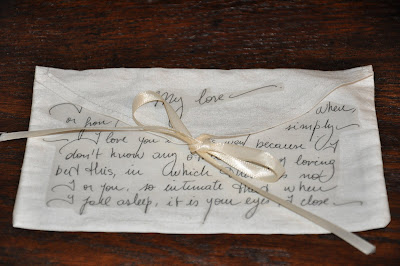 My love
or how, when,
simply
I love you way because I
don't know any of loving
but this, in which there is not
I or you, so intimate that when
I fale asleep, it is your eyes I close